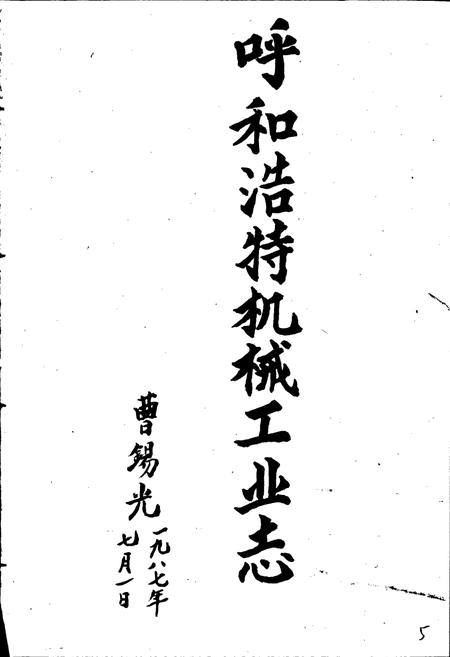 呼和浩特机械工业志
曹锡光
一九八七年
七月一日
5